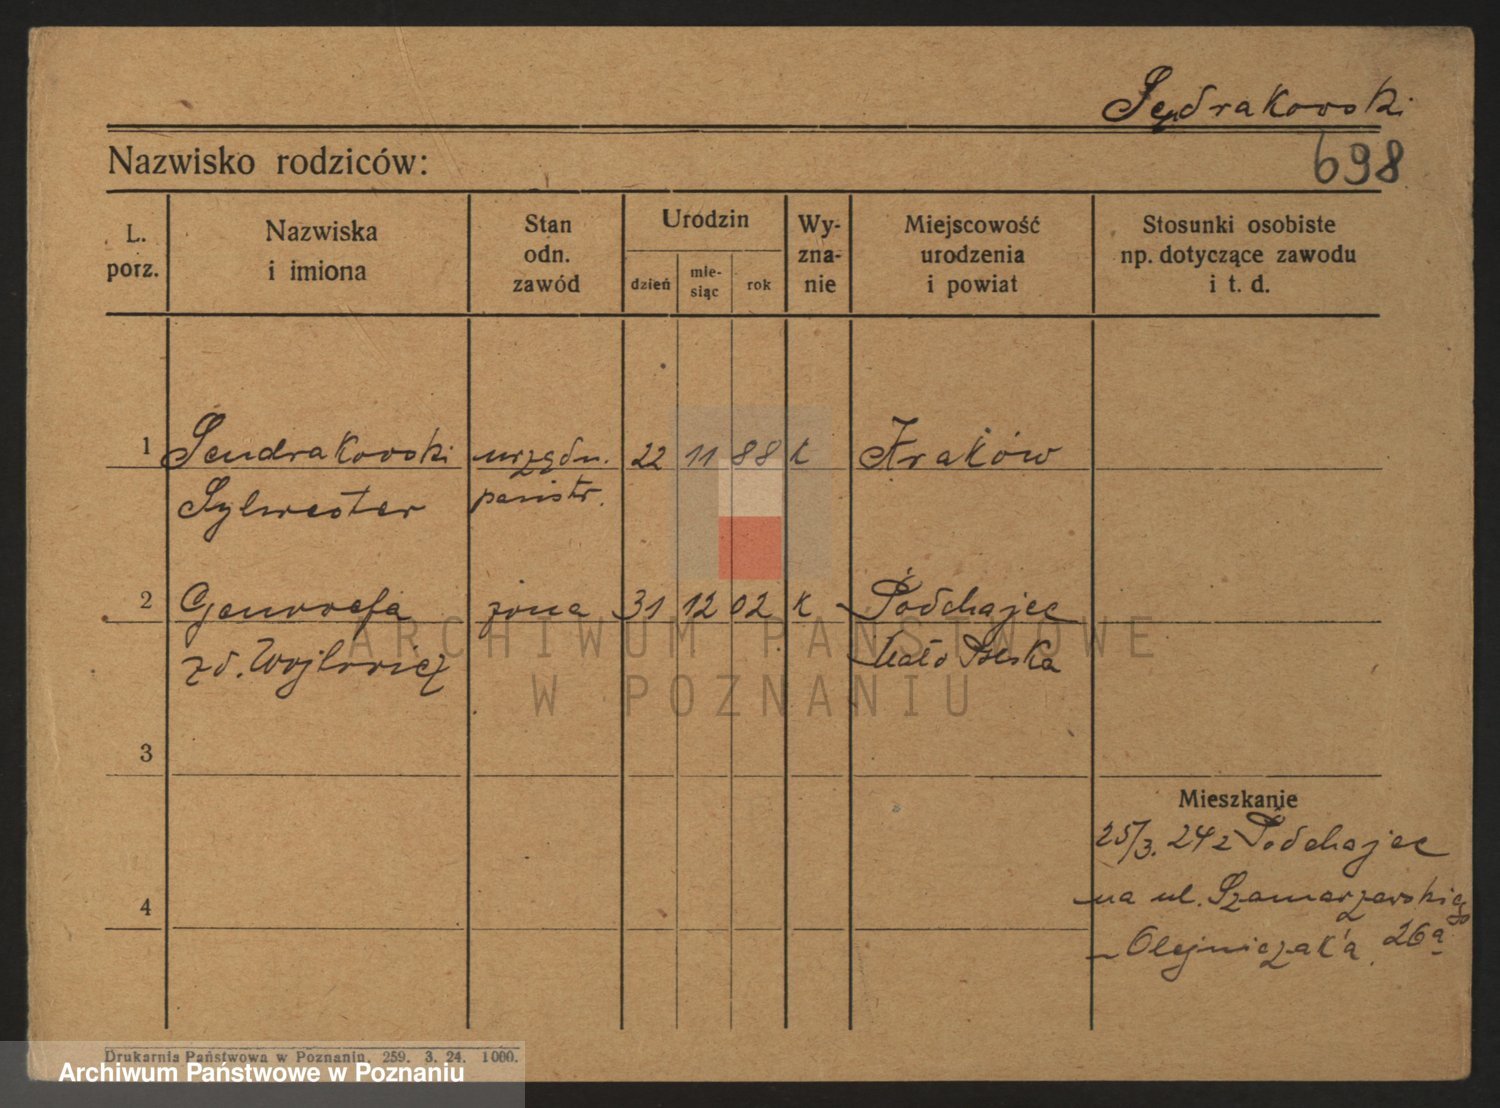 Sędrakowski
Nazwisko rodziców:
698
L. porz.
Nazwiska i imiona
Stan odn. zawód
Urodzin
dzień
mie- siąc
rok
Wy- zna- nie
Miejscowość urodzenia i powiat
Stosunki osobiste np. dotyczące zawodu i t. d.
1 Sendrakowski urzędn. 22 11 88 k Kraków
Sylwester państw.
2 Genowefa żona 31 12 02 k Podhajce
zd. Wojtowicz Mało Polska
ARCHIWUM PAŃSTWOWE
W POZNANIU
3
Mieszkanie
25/3. 24 z Podhajec
4
na ul. Szamarzewskiego
Olejniczak'a 26a
Drukarnia Państwowa w Poznaniu. 259. 3. 24. 1000.
Archiwum Państwowe w Poznaniu